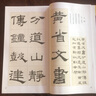 黄省文書
分道山靜
傳鐘鼓建